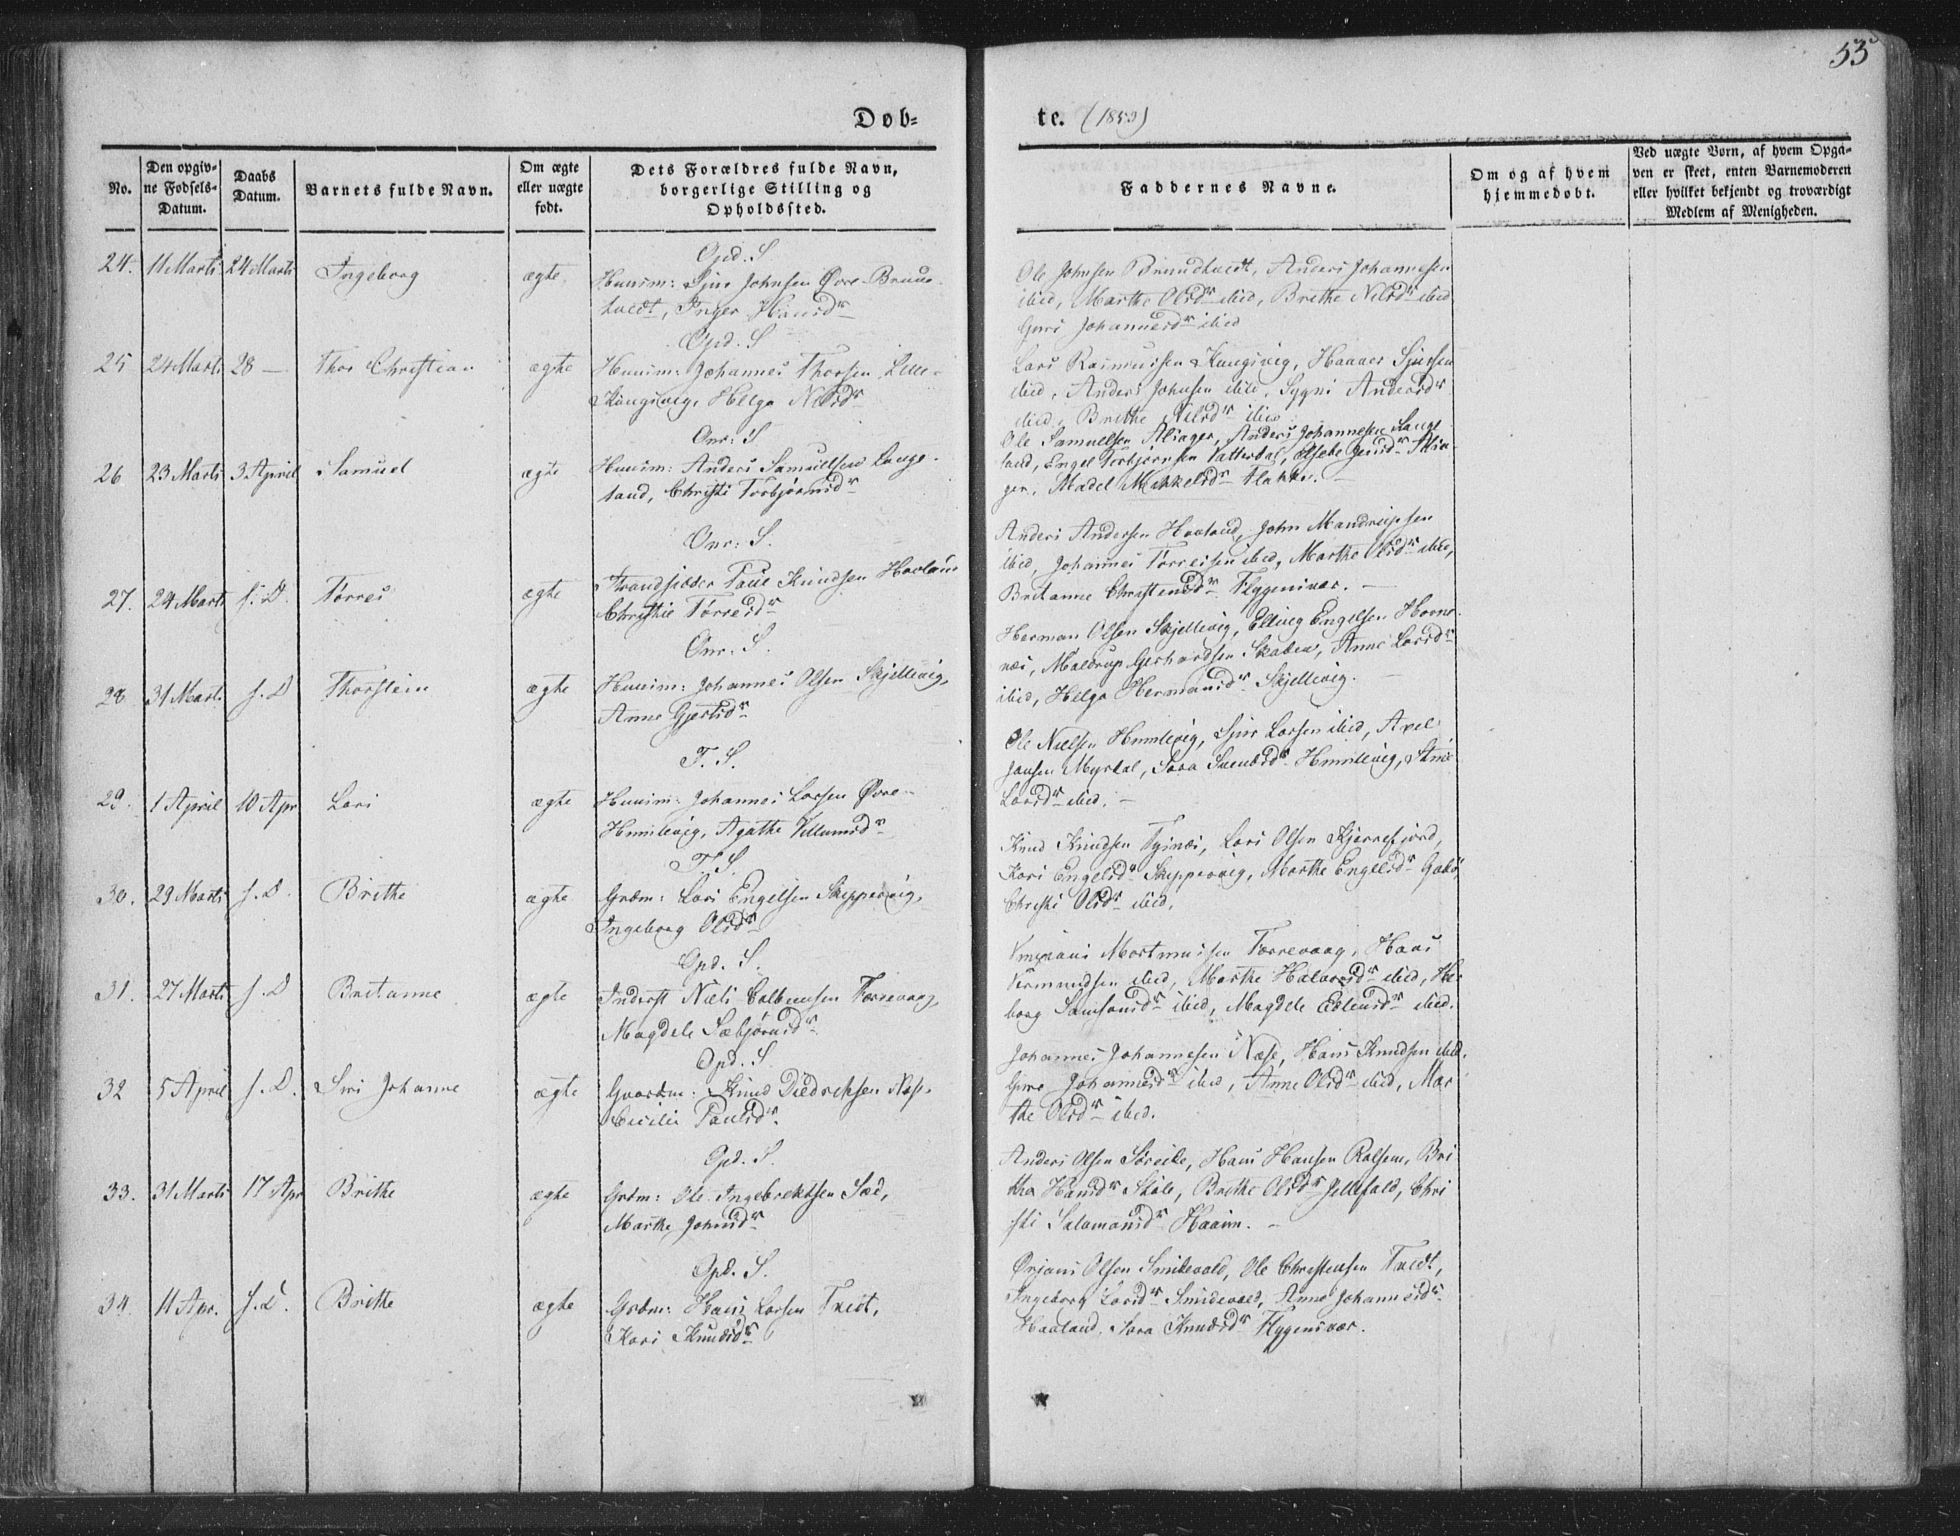 53
Døb-
te. (1853)
No.
Den opgiv-
ne Fødsels-
Datum.
Daabs
Datum.
Barnets fulde Navn.
Om ægte
eller uægte
født.
Dets Forældres fulde Navn,
borgerlige Stilling og
Opholdssted.
Faddernes Navne.
Om og af hvem
hjemmedøbt.
Ved uægte Børn, af hvem Opga-
ven er skeet, enten Barnemoderen
eller hvilket bekjendt og troværdigt
Medlem af Menigheden.
Opd. S
24. 11 Marts 24 Marts Ingeborg ægte
Huusm: Sjur Johnsen Øvre-Brund-
tvedt, Inger Hansdr
Ole Johnsen Brundtvedt, Anders Johannesen
ibid, Marthe Olsdr ibid, Brithe Nilsdr ibid
Guri Johannesdr ibid
Opd. S
25 24 Marts 28 — Thor Christian ægte
Huusm: Johannes Thorsen Lille-
Kongsvig, Helga Nilsdr
Lars Rasmussen Kongsvig, Haaver Sjursen
ibid, Anders Johnsen ibid, Sygni Andersdr
ibid, Brithe Nilsdr ibid
Onr: S
26 23 Marts 3 April Samuel ægte
Huusm: Anders Samuelsen Lange-
land, Christi Torbjørnsdr
Ole Samuelsen Aliager, Anders Johannesen Lange
land, Engel Torbjørnsen Vatterdal, Elsebe
ger, Madel Mikkelsdr Flakke. —
Onr: S.
27. 24 Marts s. D. Tørres ægte
Strandsidder Paul Knudsen Haaland
Christie Tørresdr
Anders Andersen Haaland, John Mandrupsen
ibid, Johannes Tørresen ibid, Marthe Olsdr ibid,
Britanne Christensdr Flygensvær. —
Onr: S.
28 31 Marts s. D Thorstein ægte
Huusm: Johannes Olsen Skjellevig,
Anne Gjertsdr
Herman Olsen Skjellevig, Elling Engelsen Hovne-
næs, Maldrup Gerhardsen Skaden, Anne Larsdr
ibid, Helga Hermansdr Skjellevig. —
F. S.
29. 1 April 10 Apr Lars ægte
Huusm: Johannes Larsen Øvre-
Humlevig, Agathe Villumsdr
Ole Nielsen Humlevig, Sjur Larsen ibid, Axel
Jansen Myrdal, Sara Humlevig, Anne
Larsdr ibid. —
F. S.
30. 29 Marts s. D. Brithe ægte
Grbm: Lars Engelsen Skippervig,
Ingeborg Olsdr
Knud Knudsen Tysnæs, Lars Olsen Kjerrefjord,
Kari Engelsdr Skippervig, Marthe Engelsdr Gabø,
Christi Olsdr ibid.
Opd. S.
31. 27 Marts s. D Britanne ægte
Inderst Niels Færrevaag,
Magdele Sæbjørnsdr
Mortmussen Færrevaag, Hans
Vermundsen ibid, Marthe Halvorsdr ibid, He-
borg Samsonsdr ibid, Magdele Edlendsdr ibid.
Opd. S.
32 5 April s. D. Siri Johanne ægte
Gaardm: Knud Diedriksen Næse,
Cecilie Paulsdr.
Johannes Johannesen Næse, Hans Knudsen ibid.
Guro Johannesdr ibid, Anne Olsdr ibid, Mar
the Olsdr ibid.
Opd. S.
33. 31 Marts 17 Apr Brithe ægte
Grbm: Ole Ingebrektsen Sæd,
Marthe Johnsdr
Anders Olsen Søreide, Hans Hansen Rolsem, Bri
tha Hansdr Skåle, Brithe Olsdr Jellefald, Chri
sti Salamonsdr Haavn. —
Opd. S.
34. 11 Apr. s. D. Brithe ægte
Grbm: Hans Larsen Tvedt,
Kari Knudsdr
Ørjans Olsen Smidevold, Ole Christensen Tvedt,
Ingeborg Larsdr Smidevold, Anne Johannesdr
Haaland, Sara Knudsdr Flygensvær.